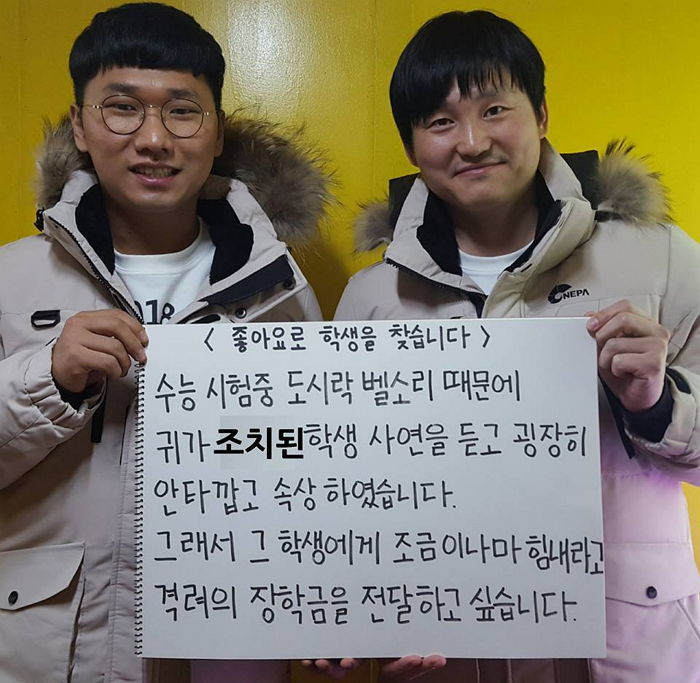 < 좋아요로 학생을 찾습니다 >
수능 시험중 도시락 벨소리 때문에
귀가 조치된 학생 사연을 듣고 굉장히
안타깝고 속상하였습니다.
그래서 그 학생에게 조금이나마 힘내라고
격려의 장학금을 전달하고 싶습니다.
NEPA
018